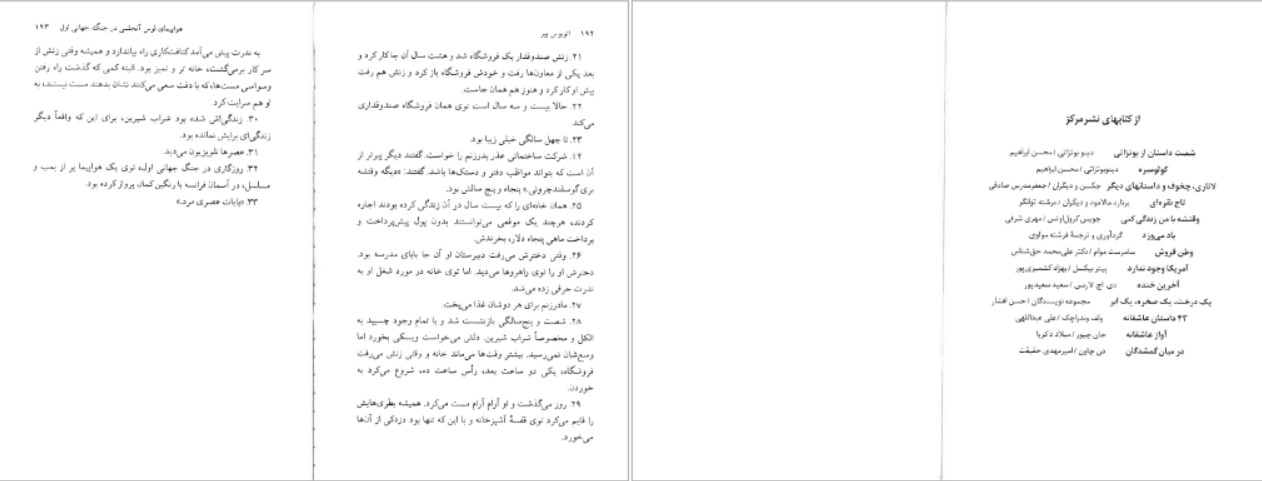 ۱۹۲ اتوبوس پیر
۲۱. زنش صندوقدار یک فروشگاه شد و هشت سال آن جا کار کرد و
بعد یکی از معاون‌ها رفت و خودش فروشگاه باز کرد و زنش هم رفت
پیش او کار کرد و هنوز هم همان جاست.
۲۲. حالا بیست و سه سال است توی همان فروشگاه صندوقداری
می‌کند.
۲۳. تا چهل سالگی خیلی زیبا بود.
۲۴. شرکت ساختمانی عذر پدرزنم را خواست. گفتند دیگر پیرتر از
آن است که بتواند مواظب دفتر و دستک‌ها باشد. گفتند: «دیگه وقتشه
بری گوسفندچرونی.» پنجاه و پنج سالش بود.
۲۵. همان خانه‌ای را که بیست سال در آن زندگی کرده بودند اجاره
کردند، هرچند یک موقعی می‌توانستند بدون پول پیش‌پرداخت و
پرداخت ماهی پنجاه دلار، بخرندش.
۲۶. وقتی دخترش می‌رفت دبیرستان او آن جا بابای مدرسه بود.
دخترش او را توی راهروها می‌دید. اما توی خانه در مورد شغل او به
ندرت حرفی زده می‌شد.
۲۷. مادرزنم برای هر دوشان غذا می‌پخت.
۲۸. شصت و پنج‌سالگی بازنشست شد و با تمام وجود چسبید به
الکل و مخصوصاً شراب شیرین. دلش می‌خواست ویسکی بخورد اما
وسع‌شان نمی‌رسید. بیشتر وقت‌ها می‌ماند خانه و وقتی زنش می‌رفت
فروشگاه، یکی دو ساعت بعد، رأس ساعت ده، شروع می‌کرد به
خوردن.
۲۹. روز می‌گذشت و او آرام آرام مست می‌کرد. همیشه بطری‌هایش
را قایم می‌کرد توی قفسهٔ آشپزخانه و با این که تنها بود دزدکی از آن‌ها
می‌خورد.
هواپیمای لوس آنجلسی در جنگ جهانی اول ۱۹۳
به ندرت پیش می‌آمد کثافتکاری راه بیاندازد و همیشه وقتی زنش از
سر کار برمی‌گشت، خانه تر و تمیز بود. البته کمی که گذشت راه رفتن
وسواسی مست‌ها، که با دقت سعی می‌کنند نشان بدهند مست نیستند، به
او هم سرایت کرد.
۳۰. زندگی‌اش شده بود شراب شیرین، برای این که واقعاً دیگر
زندگی‌ای برایش نمانده بود.
۳۱. عصرها تلویزیون می‌دید.
۳۲. روزگاری در جنگ جهانی اول، توی یک هواپیما پر از بمب و
مسلسل، در آسمان فرانسه با رنگین کمان پرواز کرده بود.
۳۳. «بابات عصری مرد.»
از کتابهای نشر مرکز
شصت داستان از بوتزاتی دینو بوتزاتی / محسن ابراهیم
کولومبره دینو بوتزاتی / محسن ابراهیم
لاتاری، چخوف و داستانهای دیگر جکسن و دیگران / جعفر مدرس صادقی
تاج نقره‌ای برنارد مالامود و دیگران / فرشته توانگر
وقتشه با من زندگی کنی جویس کرول اوتس / مهری شرفی
باد می‌وزد گردآوری و ترجمهٔ فرشته مولوی
وطن فروش سامرست موام / دکتر علی‌محمد حق‌شناس
آمریکا وجود ندارد پیتر بیکسل / بهزاد کشمیری‌پور
آخرین خنده دی. اچ. لارنس / سعید سعیدپور
یک درخت، یک صخره، یک ابر مجموعه نویسندگان / حسن افشار
۴۳ داستان عاشقانه ولف وندراچک / علی عبداللهی
آواز عاشقانه جان چیور / میلاد ذکریا
در میان گمشدگان دن چاون / امیرمهدی حقیقت